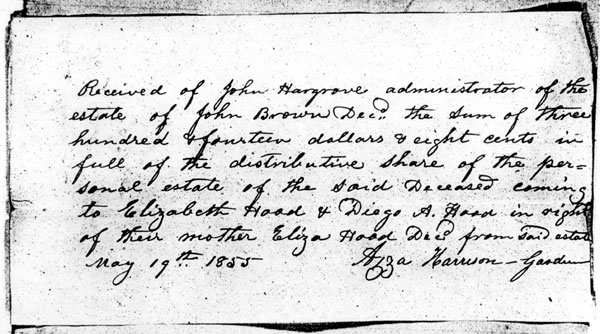 Received of John Hargrove administrator of the
estate of John Brown Decd. the sum of three
hundred & fourteen dollars & eight cents in
full of the distributive share of the per=
sonal estate of the said Deceased coming
to Elizabeth Hood & Diego A. Hood in right
of their mother Eliza Hood Decd. from said estate
May 19th. 1855 Harrison -